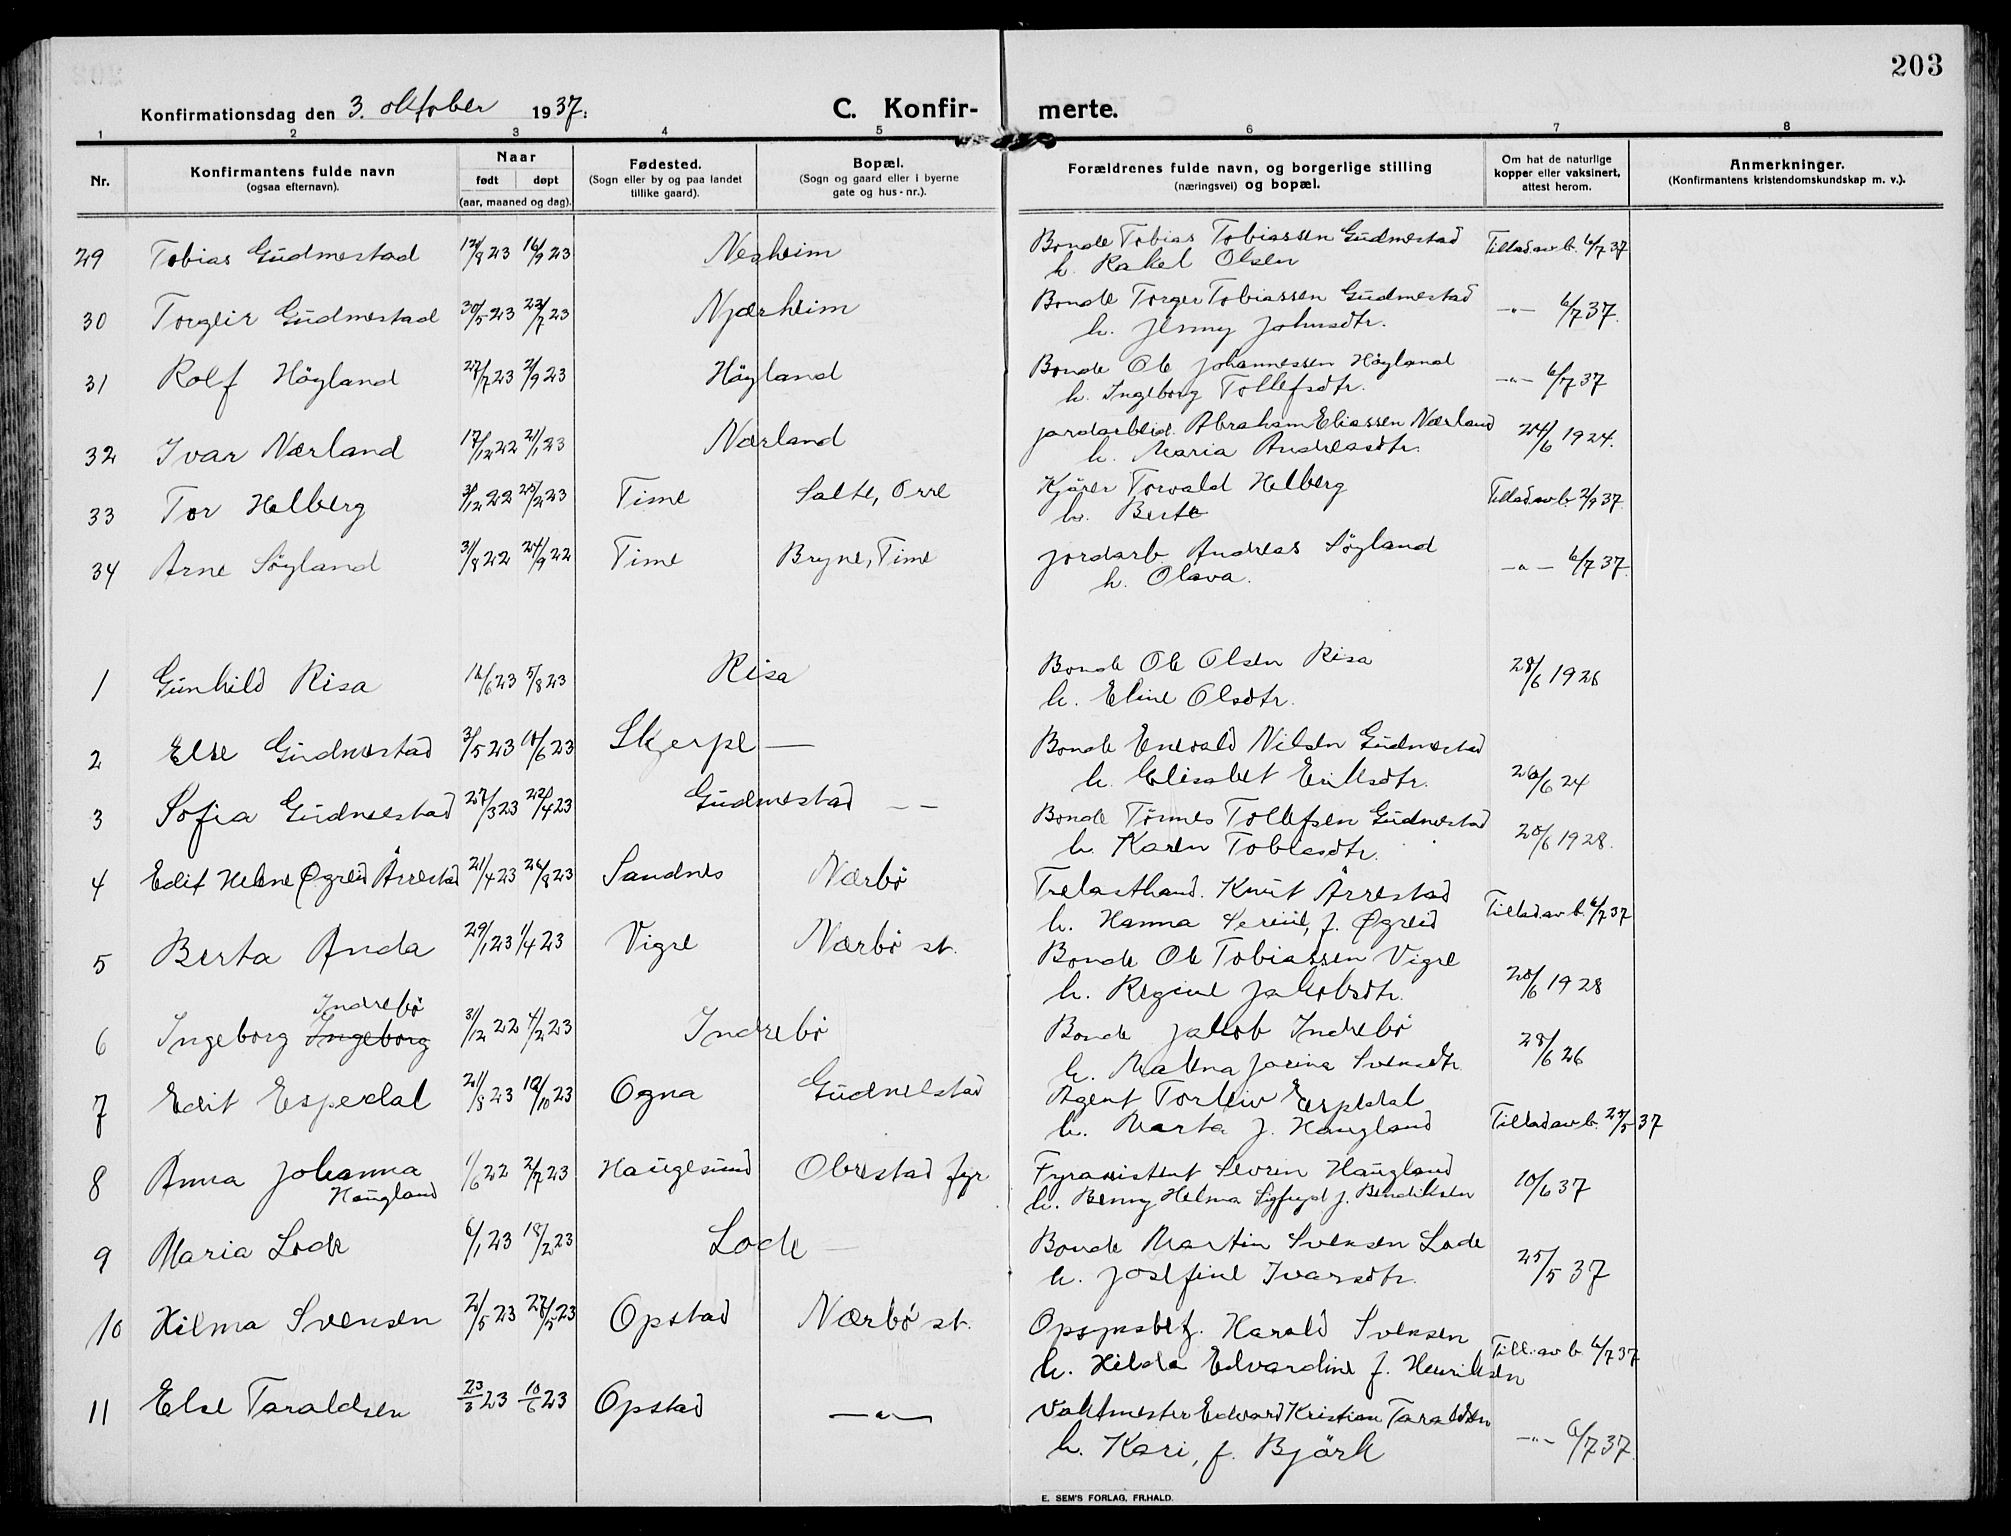 203
Konfirmationsdag den 3. oktober 1937.
C. Konfir-
merte.
1 2 3 4 5 6 7 8
Nr.
Konfirmantens fulde navn
(ogsaa efternavn).
Naar
født døpt
(aar, maaned og dag).
Fødested.
(Sogn eller by og paa landet
tillike gaard).
Bopæl.
(Sogn og gaard eller i byerne
gate og hus-nr.).
Forældrenes fulde navn, og borgerlige stilling
(næringsvei) og bopæl.
Om hat de naturlige
kopper eller vaksinert,
attest herom.
Anmerkninger.
(Konfirmantens kristendomskundskap m. v.).
29 Tobias Gudmestad 12/8 23 16/9 23 Nesheim
Bonde Tobias Tobiassen Gudmestad
h. Rakel Olsen
Tillad. av b. 6/7 37
30 Torgeir Gudmestad 30/5 23 22/7 23 Njærheim
Bonde Torger Tobiassen Gudmestad
h. Jenny Johnsdtr.
-"- 6/7 37.
31 Rolf Høyland 27/7 23 2/9 23 Høyland
Bonde Ole Johannessen Høyland
h. Ingeborg Tollefsdtr.
-"- 6/7 37
32 Ivar Nærland 17/12 22 21/1 23 Nærland
jordarbeid. Abraham Eliassen Nærland
h. Maria Andreasdtr.
24/6 1924.
33 Tor Helberg 31/12 22 25/2 23 Time Salte, Orre
Kjører Torvald Helberg
h. Berte
Tillad. av b. 2/9 37.
34 Arne Søyland 31/8 22 24/9 22 Time Bryne, Time
jordarb. Andreas Søyland
h. Olava.
-"- 6/7 37.
1 Gunhild Risa 12/6 23 5/8 23 Risa
Bonde Ole Olsen Risa
h. Eline Olsdtr.
28/6 1926
2 Else Gudmestad 3/5 23 10/6 23 Skjerpe —
Bonde Enevald Nilsen Gudmestad
h. Elisabet Eriksdtr.
26/6 24
3 Sofia Gudmestad 27/3 23 22/4 23 Gudmestad — —
Bonde Tønnes Tollefsen Gudmestad
h. Karen Tobiasdtr.
20/6 1928.
4 Edit Helene Øgreid Årrestad 21/4 23 26/8 23 Sandnes Nærbø
Trelasthand. Knut Årrestad
h. Hanna Serine, f. Øgreid
Tillad. av b. 6/7 37
5 Berta Anda 29/1 23 1/4 23 Vigre Nærbø st.
Bonde Ole Tobiassen Vigre
h. Regine Jakobsdtr.
20/6 1928
Indrebø
6 Ingeborg Ingeborg 31/12 22 4/2 23 Indrebø
Bonde Jakob Indrebø
h. Malena Jorina Svensdtr.
28/6 26
7 Edit Espedal 21/8 23 12/10 23 Ogna Gudmestad
Agent Torleiv Espedal
h. Marta f. Haugland
Tillad av b. 25/5 37
8 Anna Johanna
Haugland
1/6 22 2/7 23 Haugesund Obrestad fyr
Fyrassistent Søren Haugland
h. Benny Helma Sigfryd f. Bendiksen
10/6 37
9 Maria Lode 6/1 23 18/2 23 Lode —
Bonde Martin Svensen Lode
h. Josefine Ivarsdtr.
25/5 37
10 Hilma Svensen 2/5 23 27/5 23 Opstad Nærbø st.
Opsynsbetj. Harald Svensen
h. Hilda Edvardine f. Henriksen
Till. av b. 6/7 37
11 Else Taraldsen 23/3 23 10/6 23 Opstad —"—
Vaktmester Edvard Kristian Taraldsen
h. Kari, f. Bjørk
-"- 6/7 37.
E. SEM'S FORLAG, FR.HALD.